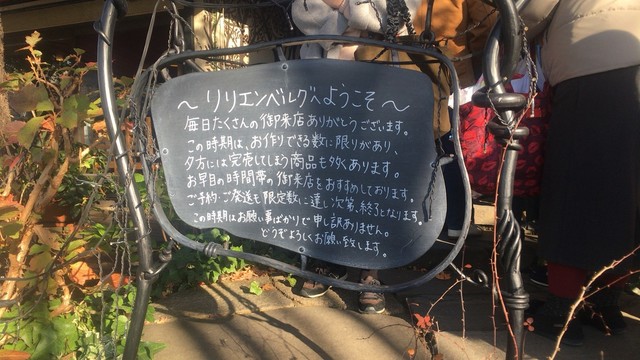 ～リリエンベルグへようこそ～
毎日たくさんの御来店ありがとうございます。
この時期は、お作りできる数に限りがあり、
夕方には完売してしまう商品も多くあります。
お早目の時間帯の御来店をおすすめしております。
ご予約・ご発送も限定数に達し次第、終了となります。
この時期はお願い事ばかりで申し訳ありません。
どうぞよろしくお願い致します。